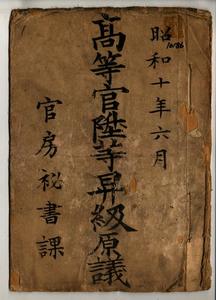 昭和十年六月
10/86
高等官陞等昇級原議
官房秘書課